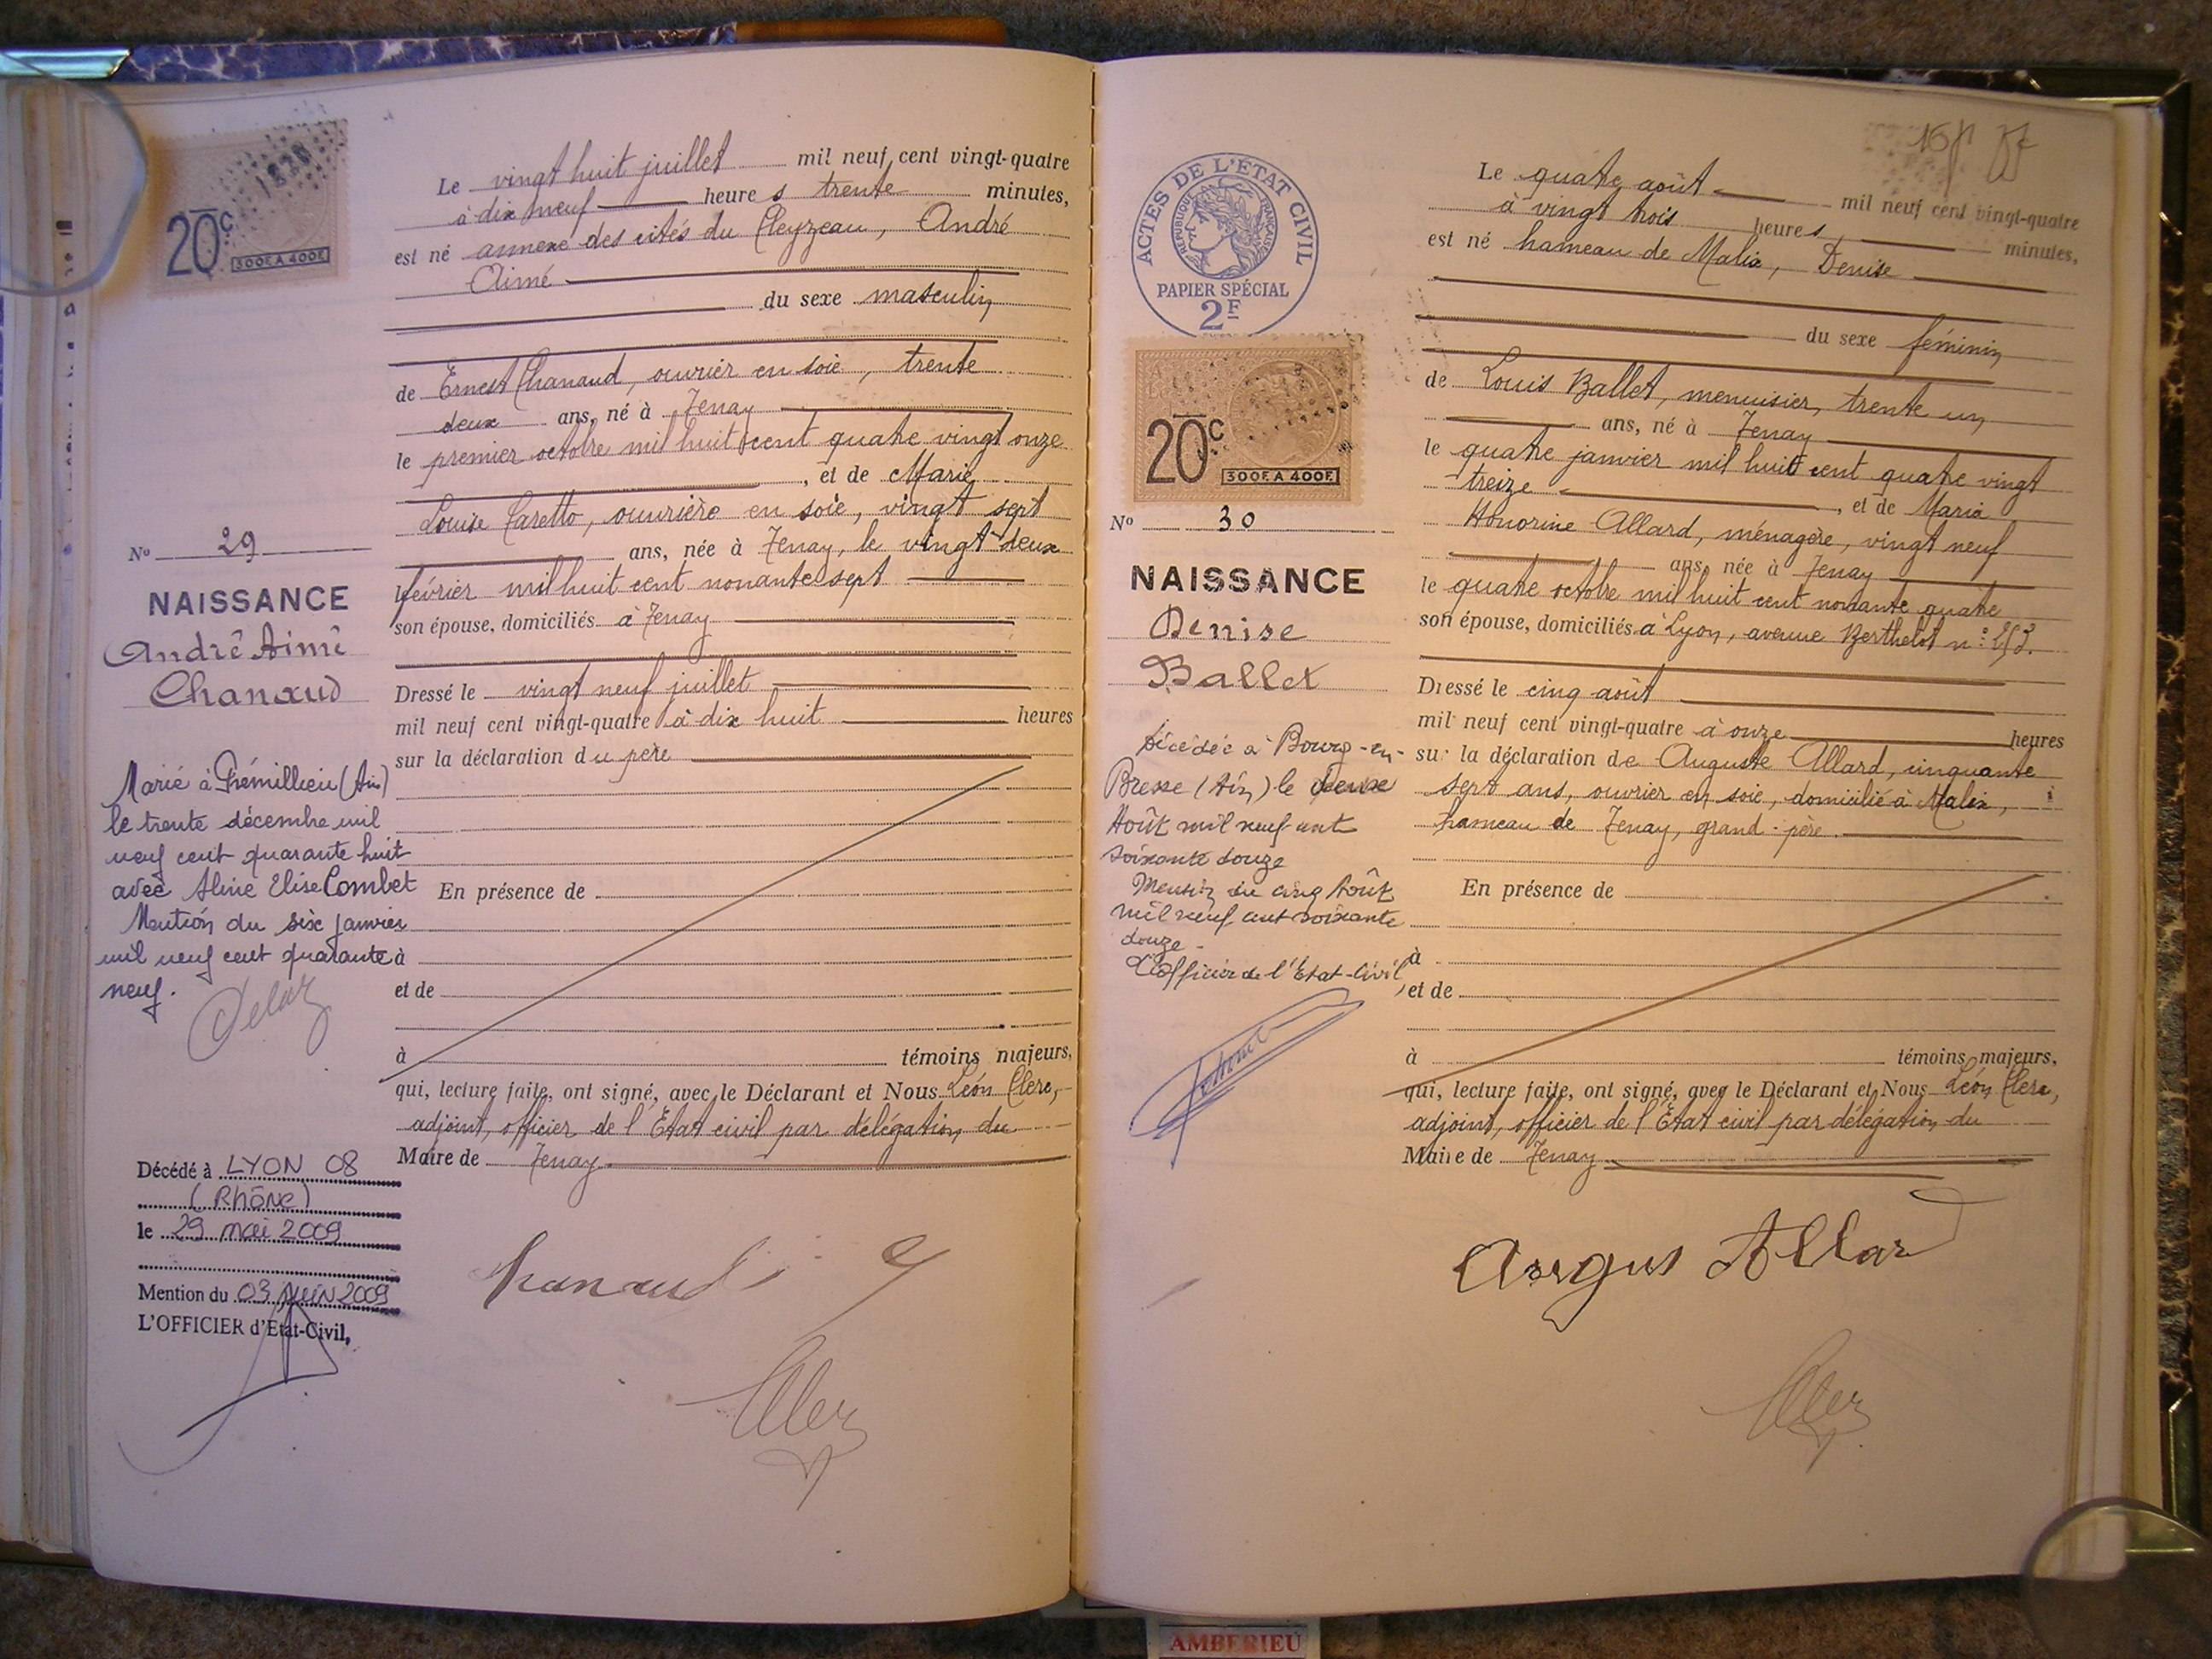 20c
300F. A 400F.
Le vingt huit juillet mil neuf cent vingt-quatre
à dix neuf heures trente minutes,
est né annexe des cités du Cleyzeau, André
Aimé
du sexe masculin
de Ernest Chanaud, ouvrier en soie, trente
deux ans, né à Tenay
le premier octobre mil huit cent quatre vingt onze
, et de Marie
Louise Caretto, ouvrière en soie, vingt sept
ans, née à Tenay, le vingt deux
février mil huit cent nonante sept
son épouse, domiciliés à Tenay
Dressé le vingt neuf juillet
mil neuf cent vingt-quatre à dix huit heures
sur la déclaration du père
En présence de
à
et de
à témoins majeurs,
qui, lecture faite, ont signé, avec le Déclarant et Nous Léon Clerc,
adjoint, officier de l'État civil par délégation du
Maire de Tenay
Chanaud
No 29
NAISSANCE
André Aimé
Chanaud
Marié à Prémillieu (Ain)
le trente décembre mil
neuf cent quarante huit
avec Aline Elise Combet
Mention du six janvier
mil neuf cent quarante
neuf.
Décédé à LYON 08
(Rhône)
le 29 mai 2009
Mention du 03 juin 2009
L'OFFICIER d'Etat-Civil,
ACTES DE L'ÉTAT CIVIL
RÉPUBLIQUE FRANÇAISE
PAPIER SPÉCIAL
2F
20c
300F. A 400F.
No 30
NAISSANCE
Denise
Ballet
Décédée à Bourg-en-
Bresse (Ain) le deux
Août mil neuf cent
soixante douze
Mention du cinq Août
mil neuf cent soixante
douze
L'officier de l'Etat-Civil,
Le quatre août mil neuf cent vingt-quatre
à vingt trois heures minutes,
est né hameau de Malix, Denise
du sexe féminin
de Louis Ballet, menuisier, trente un
ans, né à Tenay
le quatre janvier mil huit cent quatre vingt
treize , et de Maria
Honorine Allard, ménagère, vingt neuf
ans, née à Tenay
le quatre octobre mil huit cent nonante quatre
son épouse, domiciliés à Lyon, avenue Berthelot n°
Dressé le cinq août
mil neuf cent vingt-quatre à onze heures
sur la déclaration de Auguste Allard, cinquante
sept ans, ouvrier en soie, domicilié à Malix,
hameau de Tenay, grand-père
En présence de
à
et de
à témoins majeurs,
qui, lecture faite, ont signé, avec le Déclarant et Nous Léon Clerc,
adjoint, officier de l'État civil par délégation du
Maire de Tenay
Allar
AMBERIEU